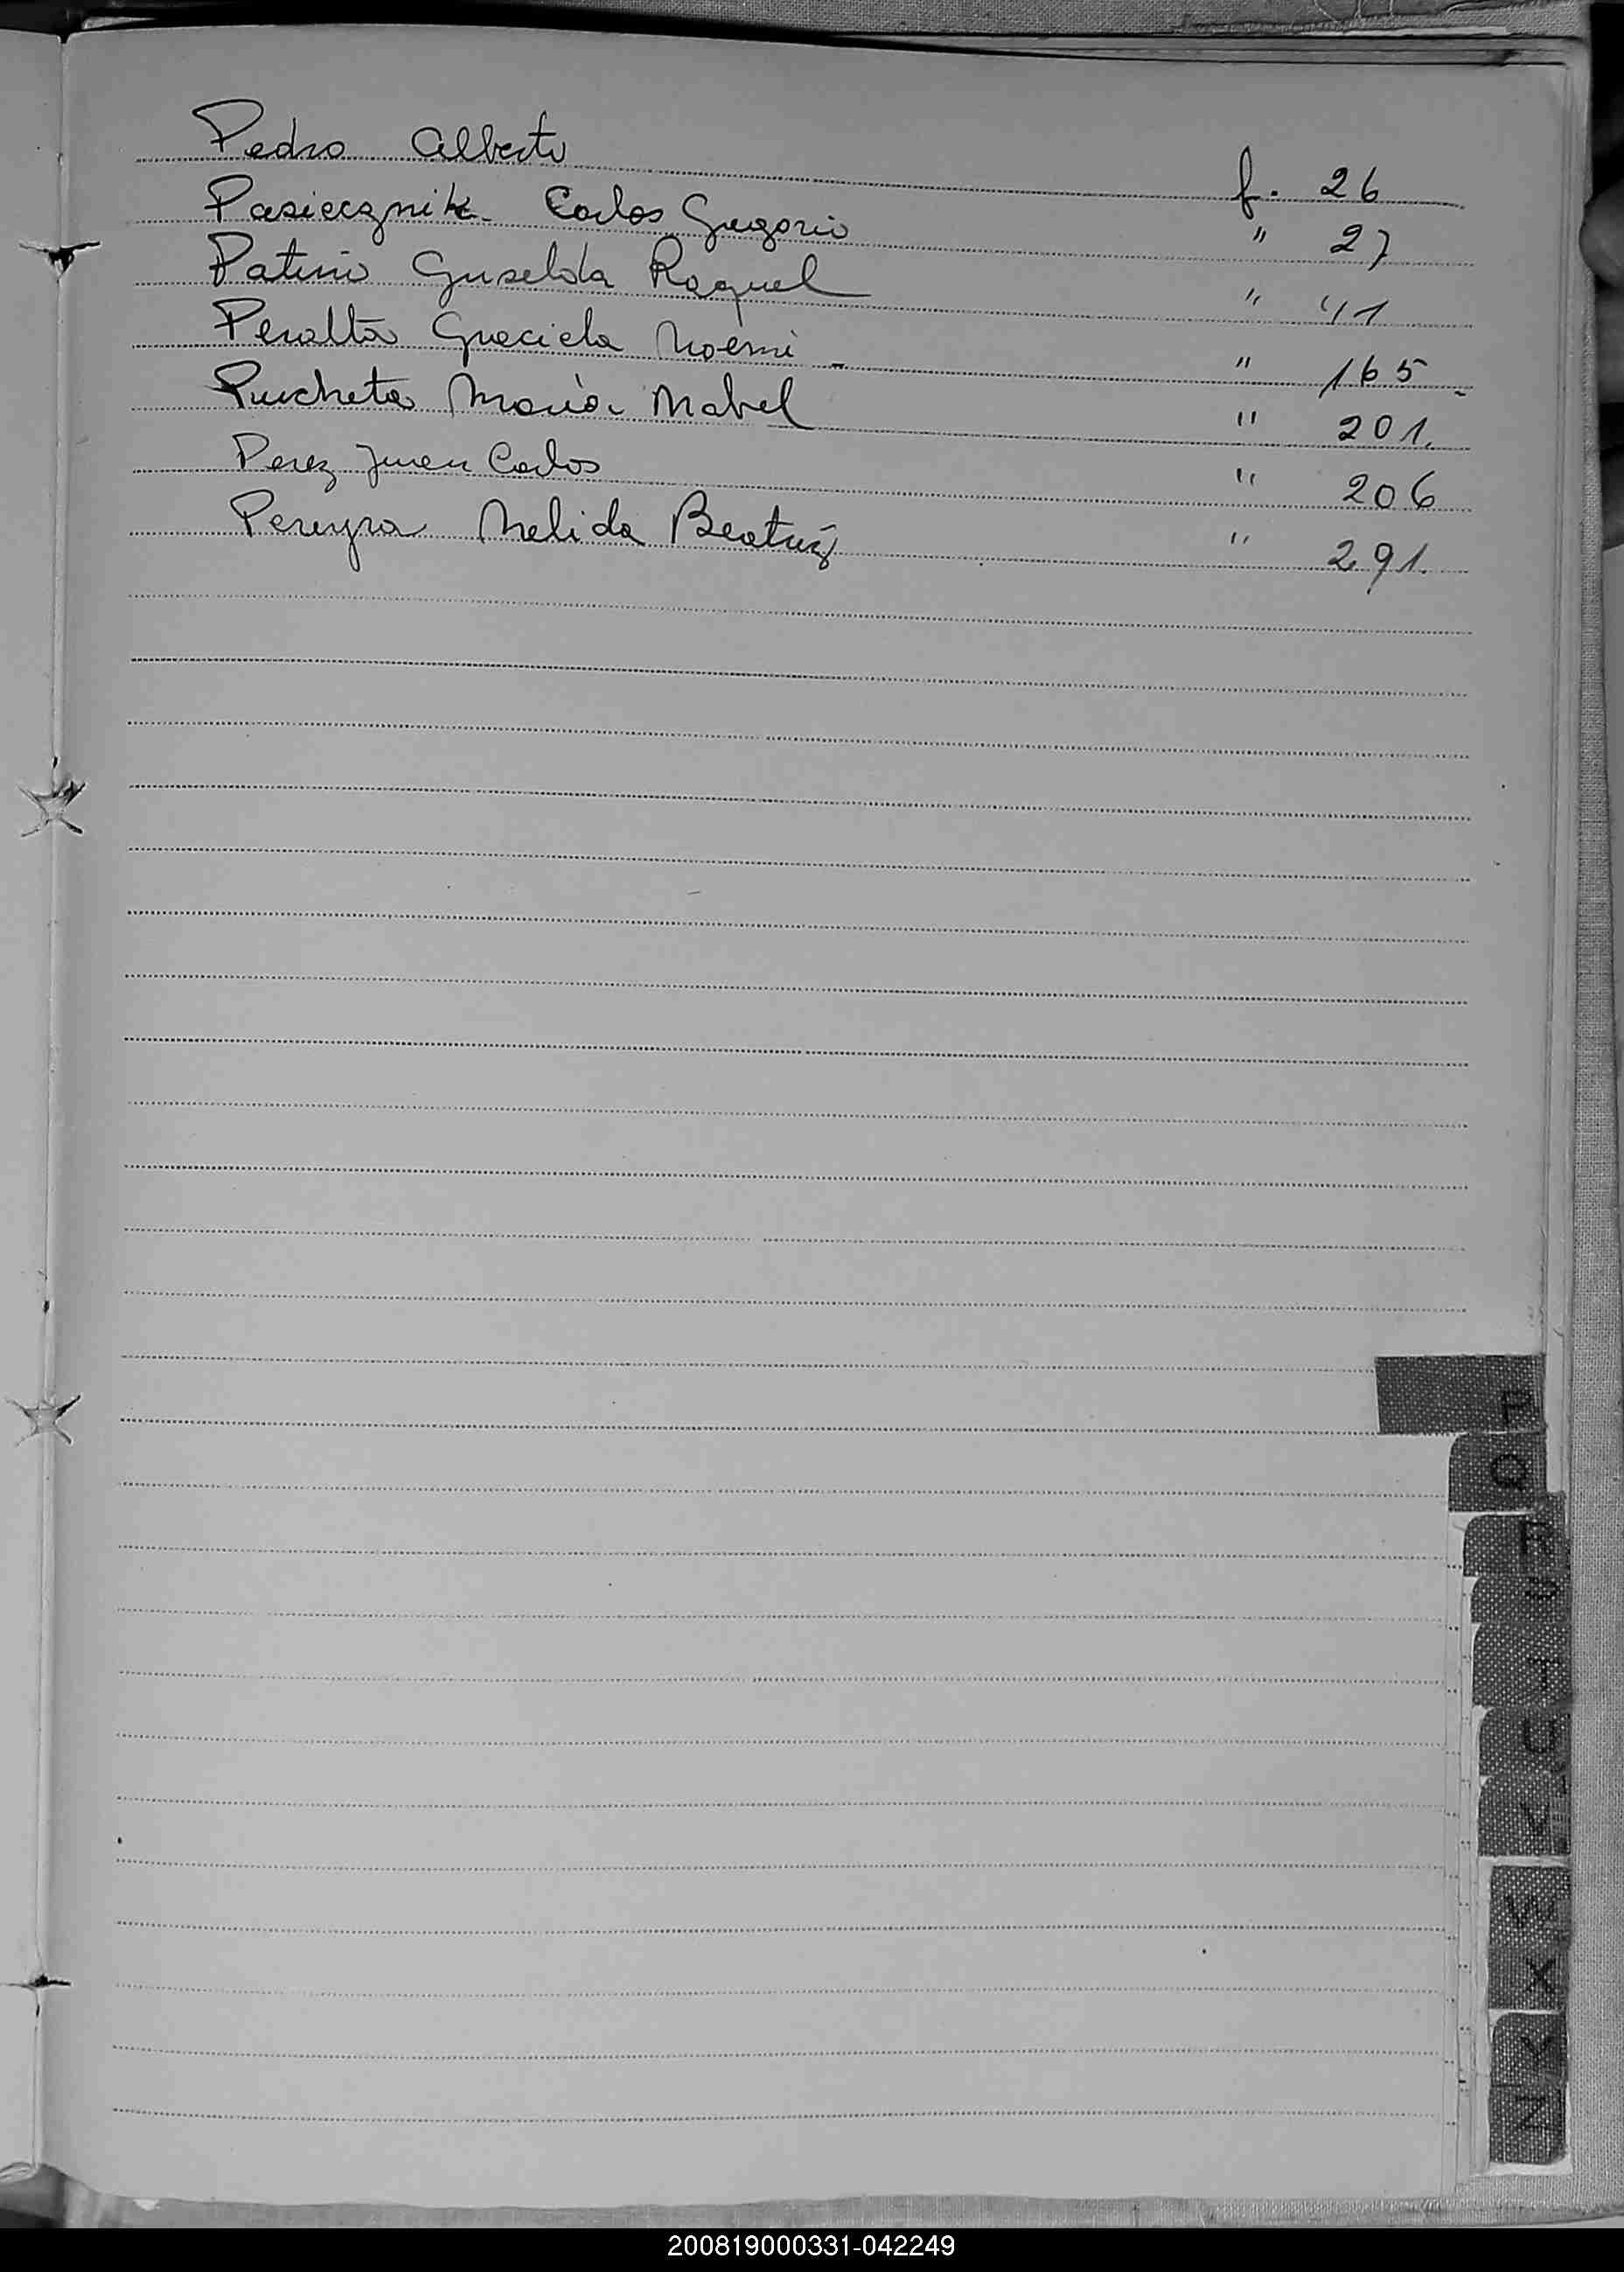 Pedro Alberto f. 26
Pasiecznik Carlos Gregorio " 27
Patiño Griselda Raquel " 41
Peralta Graciela Noemi - " 165-
Puicheta María Mabel " 201.
Perez Juan Carlos " 206
Pereyra Nelida Beatriz " 291.
P
Q
R
S
T
U
V
W
X
Y
Z
200819000331-042249